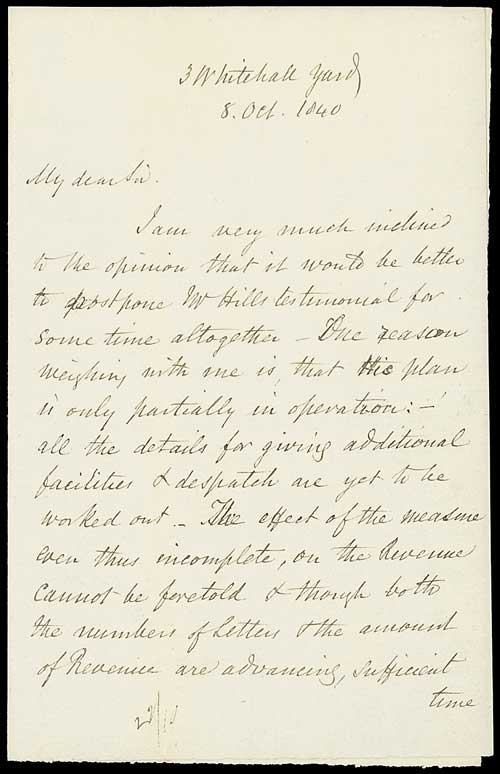 3 Whitehall Yard
8. Oct. 1840
My dear Sir.
I am very much inclined
to the opinion that it would be better
to postpone Mr Hills testimonial for
some time altogether – One reason
weighing with me is, that his plan
is only partially in operation: –
all the details for giving additional
facilities & despatch are yet to be
worked out – The effect of the measure
even thus incomplete, on the Revenue
cannot be foretold & though both
the numbers of Letters & the amount
of Revenue are advancing, sufficient
time